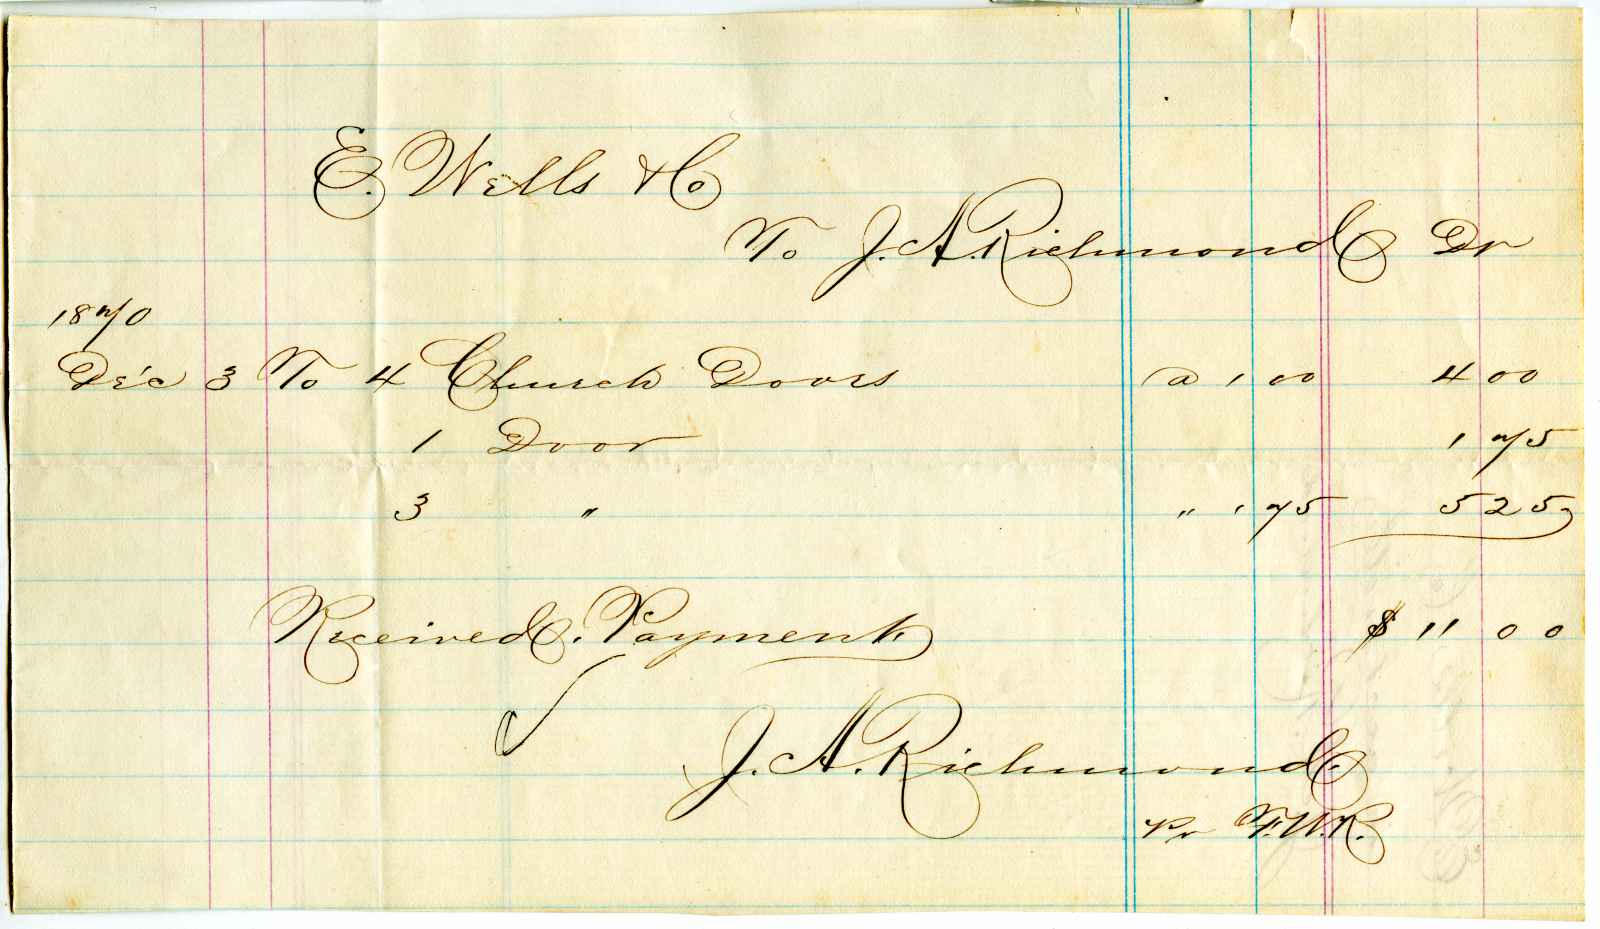 E. Wells & Co
To J. A. Richmond Dr
1870
Dec 3 To 4 Church Doors @ 1 00 4 00
1 Door 1 75
3 " " 1 75 5 25
Received. Payment $ 11 00
J. A. Richmond
Pr F.W.R.